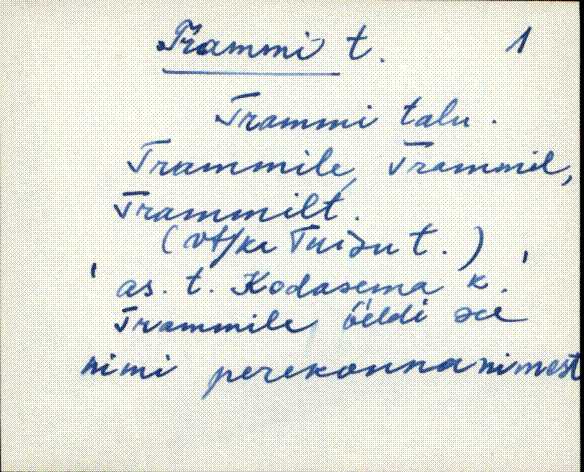 Trammi t. 1
Trammi talu.
Trammile, Trammil,
Trammilt.
(vt/ka Tuisu t.)
' as. t. Kodasema k. '
Trammile öeldi see
nimi perekonnanimest